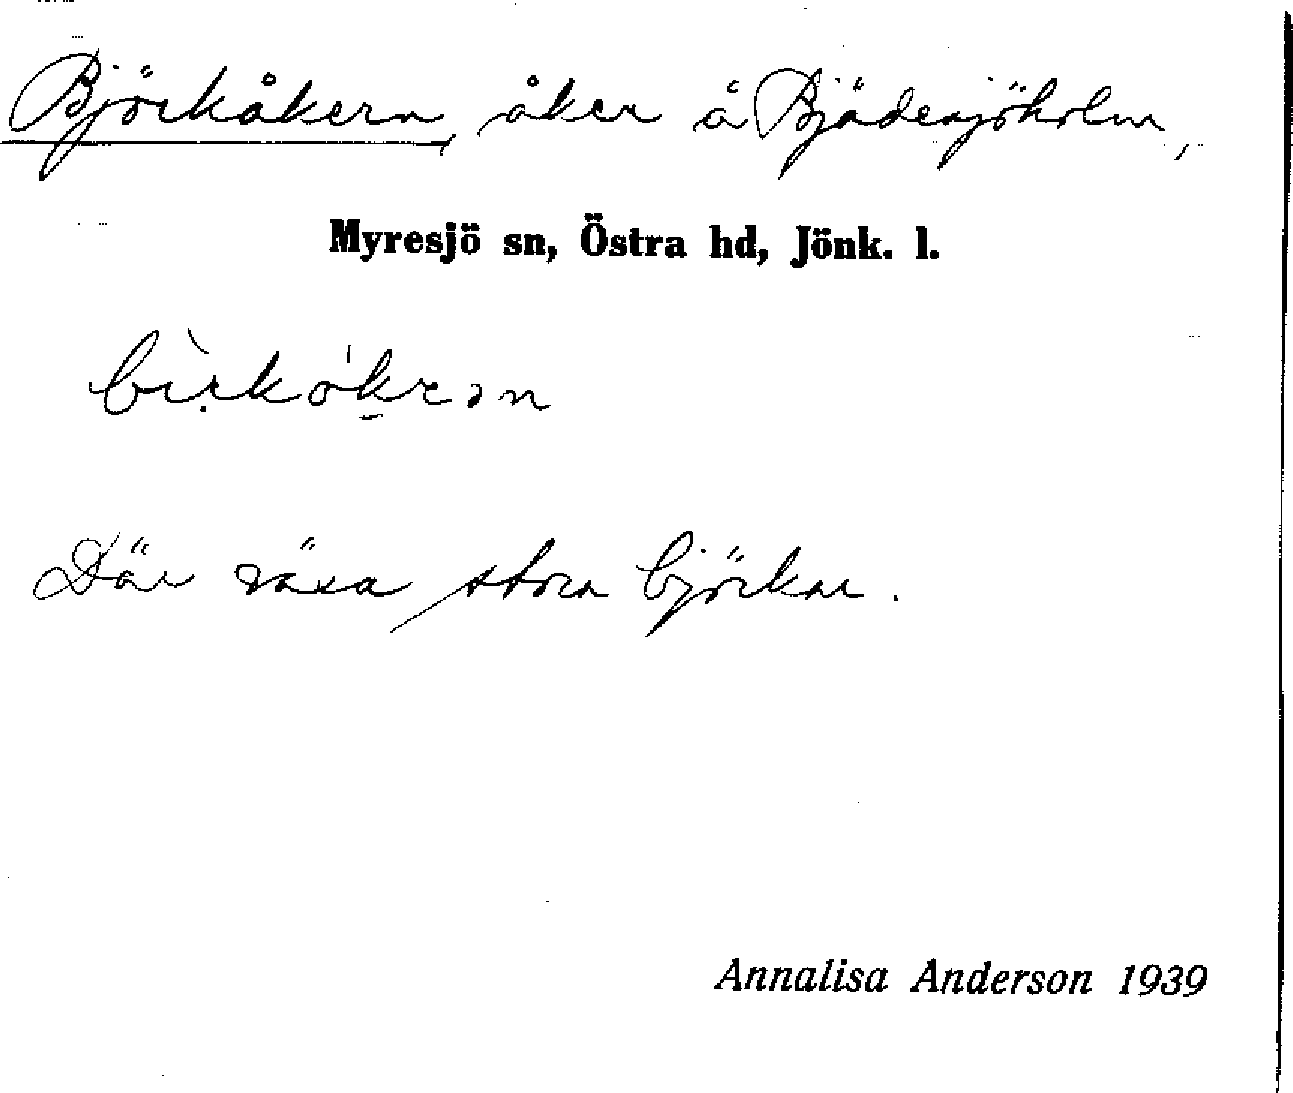 Björkåkern, åker å Bjädesjöholm,
Myresjö sn, Östra hd, Jönk. l.
Där växa stora björkar.
Annalisa Anderson 1939